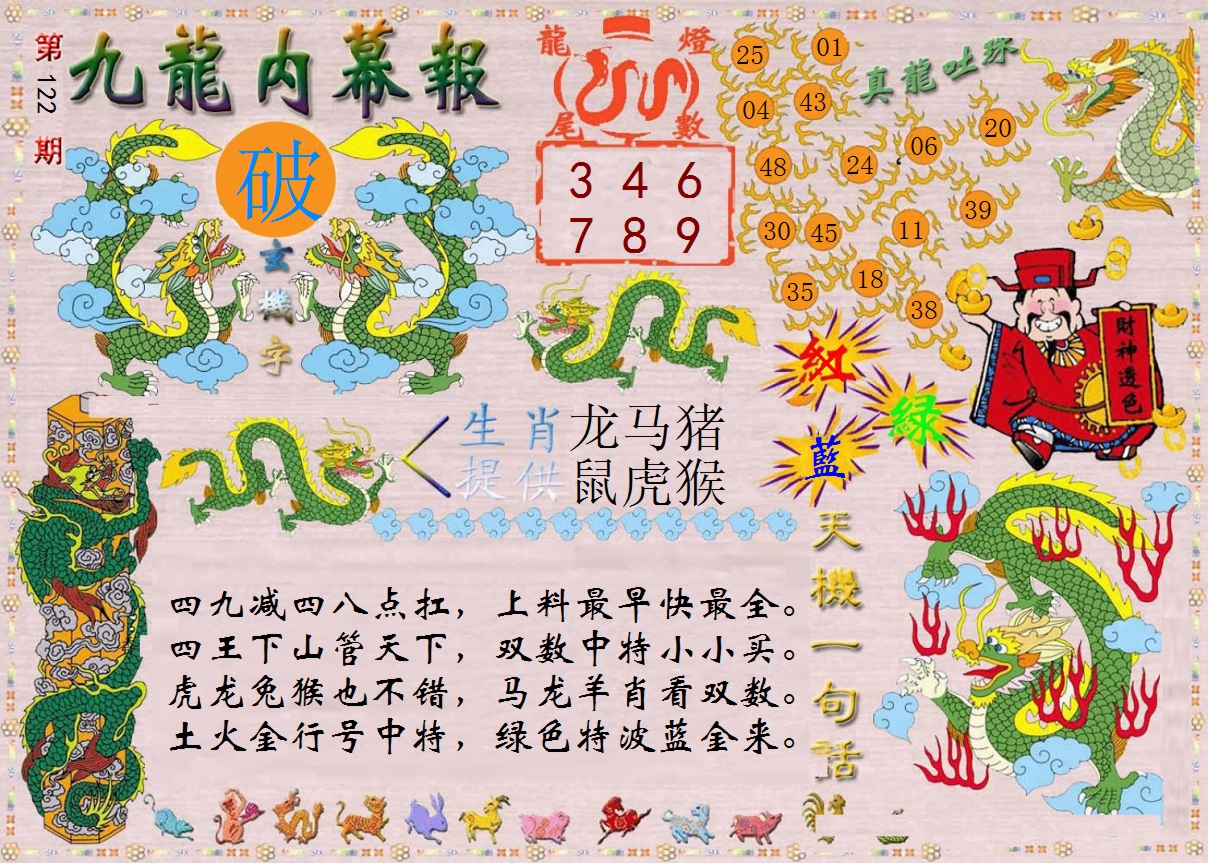 第122期
九龍内幕報
破
玄機字
龍燈
尾數
3 4 6
7 8 9
真龍吐珠
25 01
04 43
48 24 06 20
30 45 11 39
35 18 38
財神透色
紅
綠
藍
生肖 龙马猪
提供 鼠虎猴
四九减四八点扛，上料最早快最全。
四王下山管天下，双数中特小小买。
虎龙兔猴也不错，马龙羊肖看双数。
土火金行号中特，绿色特波蓝金来。
天機一句話